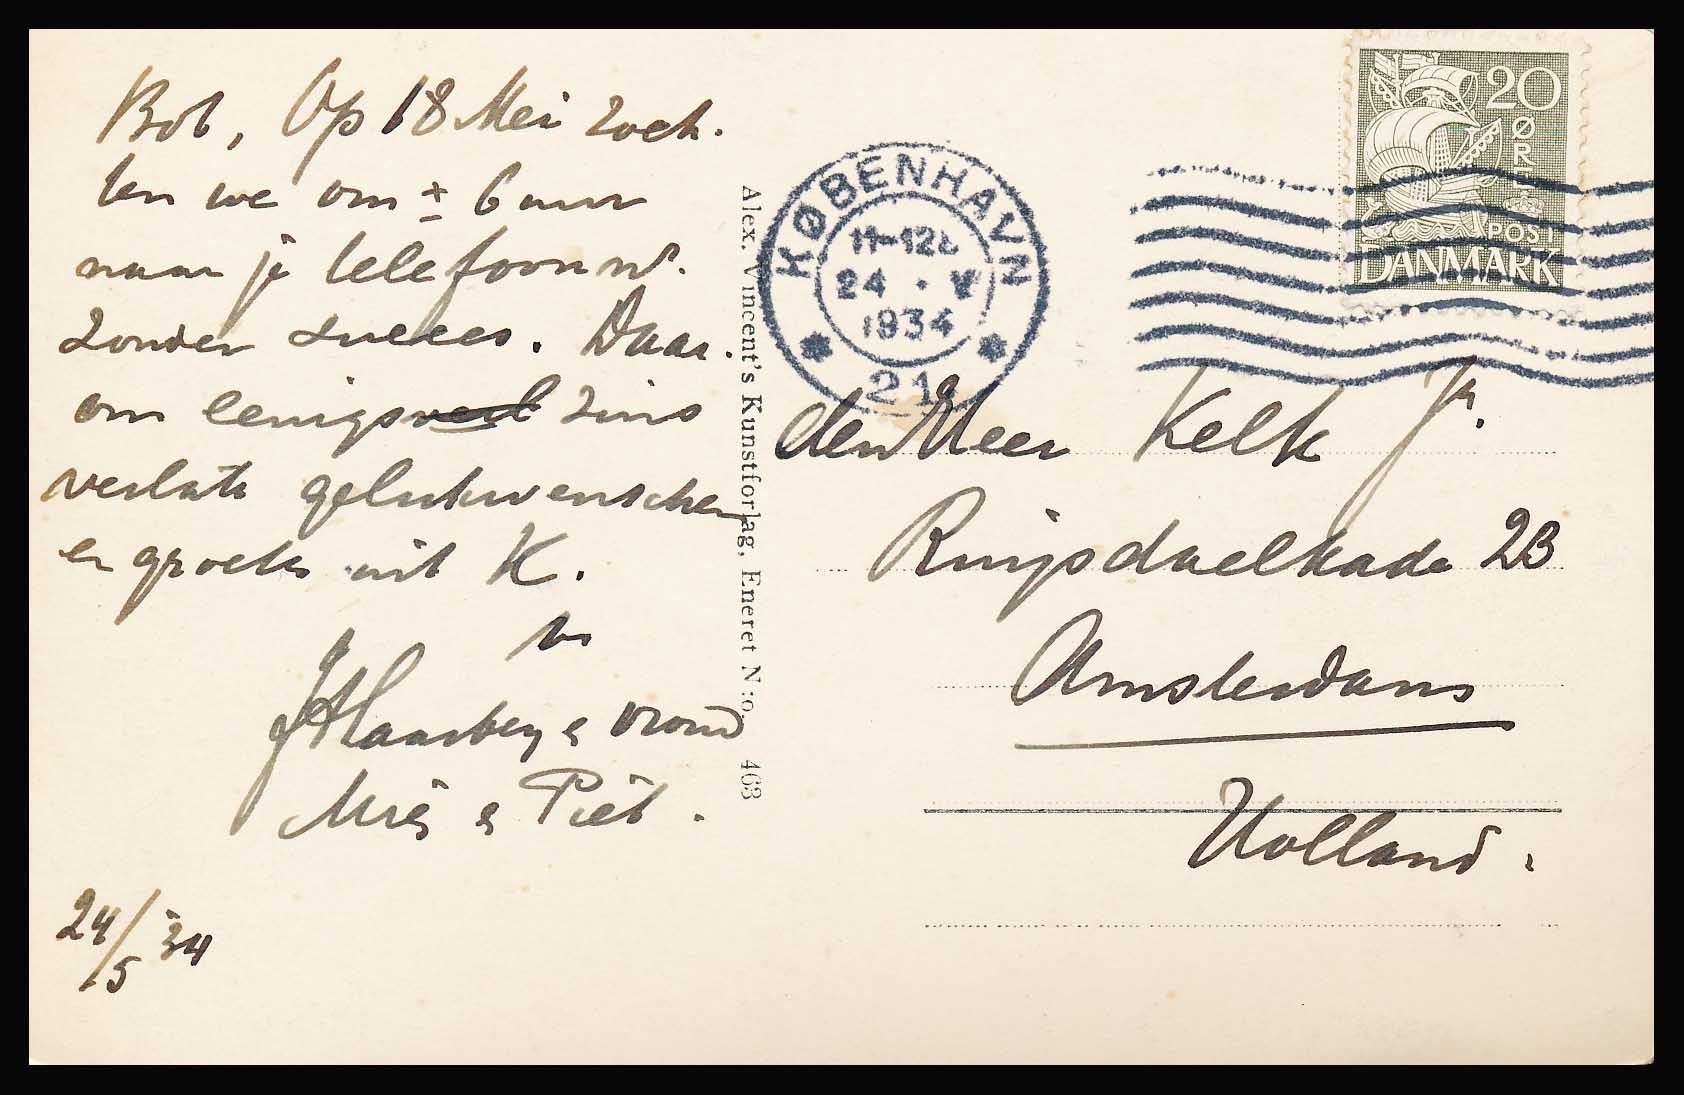 Bob, Op 18 Mei zoch-
ten we om ± 6 uur
naar je telefoon nr.
zonder succes. Daar-
om eenigs zins
verlate gelukwenschen
en groeten uit K.
J Haarbey & vrouw
Mies & Piet.
24/5 '34
Alex. Vincent's Kunstforlag, Eneret No. 463
KØBENHAVN
11-12
24 . V
1934
21
20
ØRE
POST
DANMARK
den Heer Kelk Jr.
Ruijsdaelkade 2B
Amsterdam
Holland.